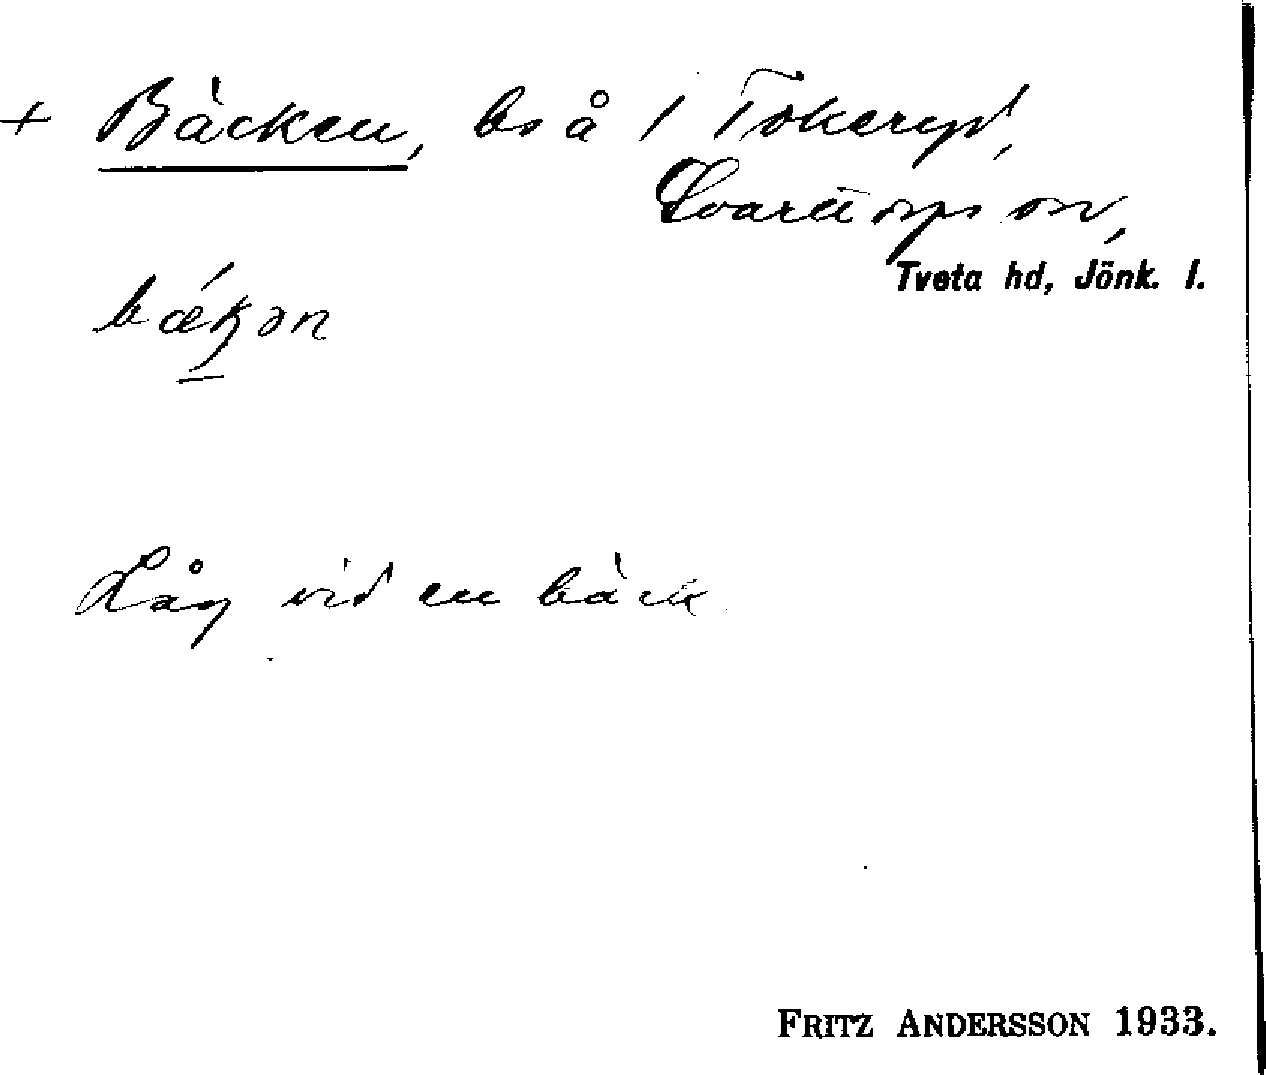 + Bäcken, bs å 1 Tokeryd,
Svarttorps sn,
Tveta hd, Jönk. l.
bǽkən
Låg vid en bäck
FRITZ ANDERSSON 1933.